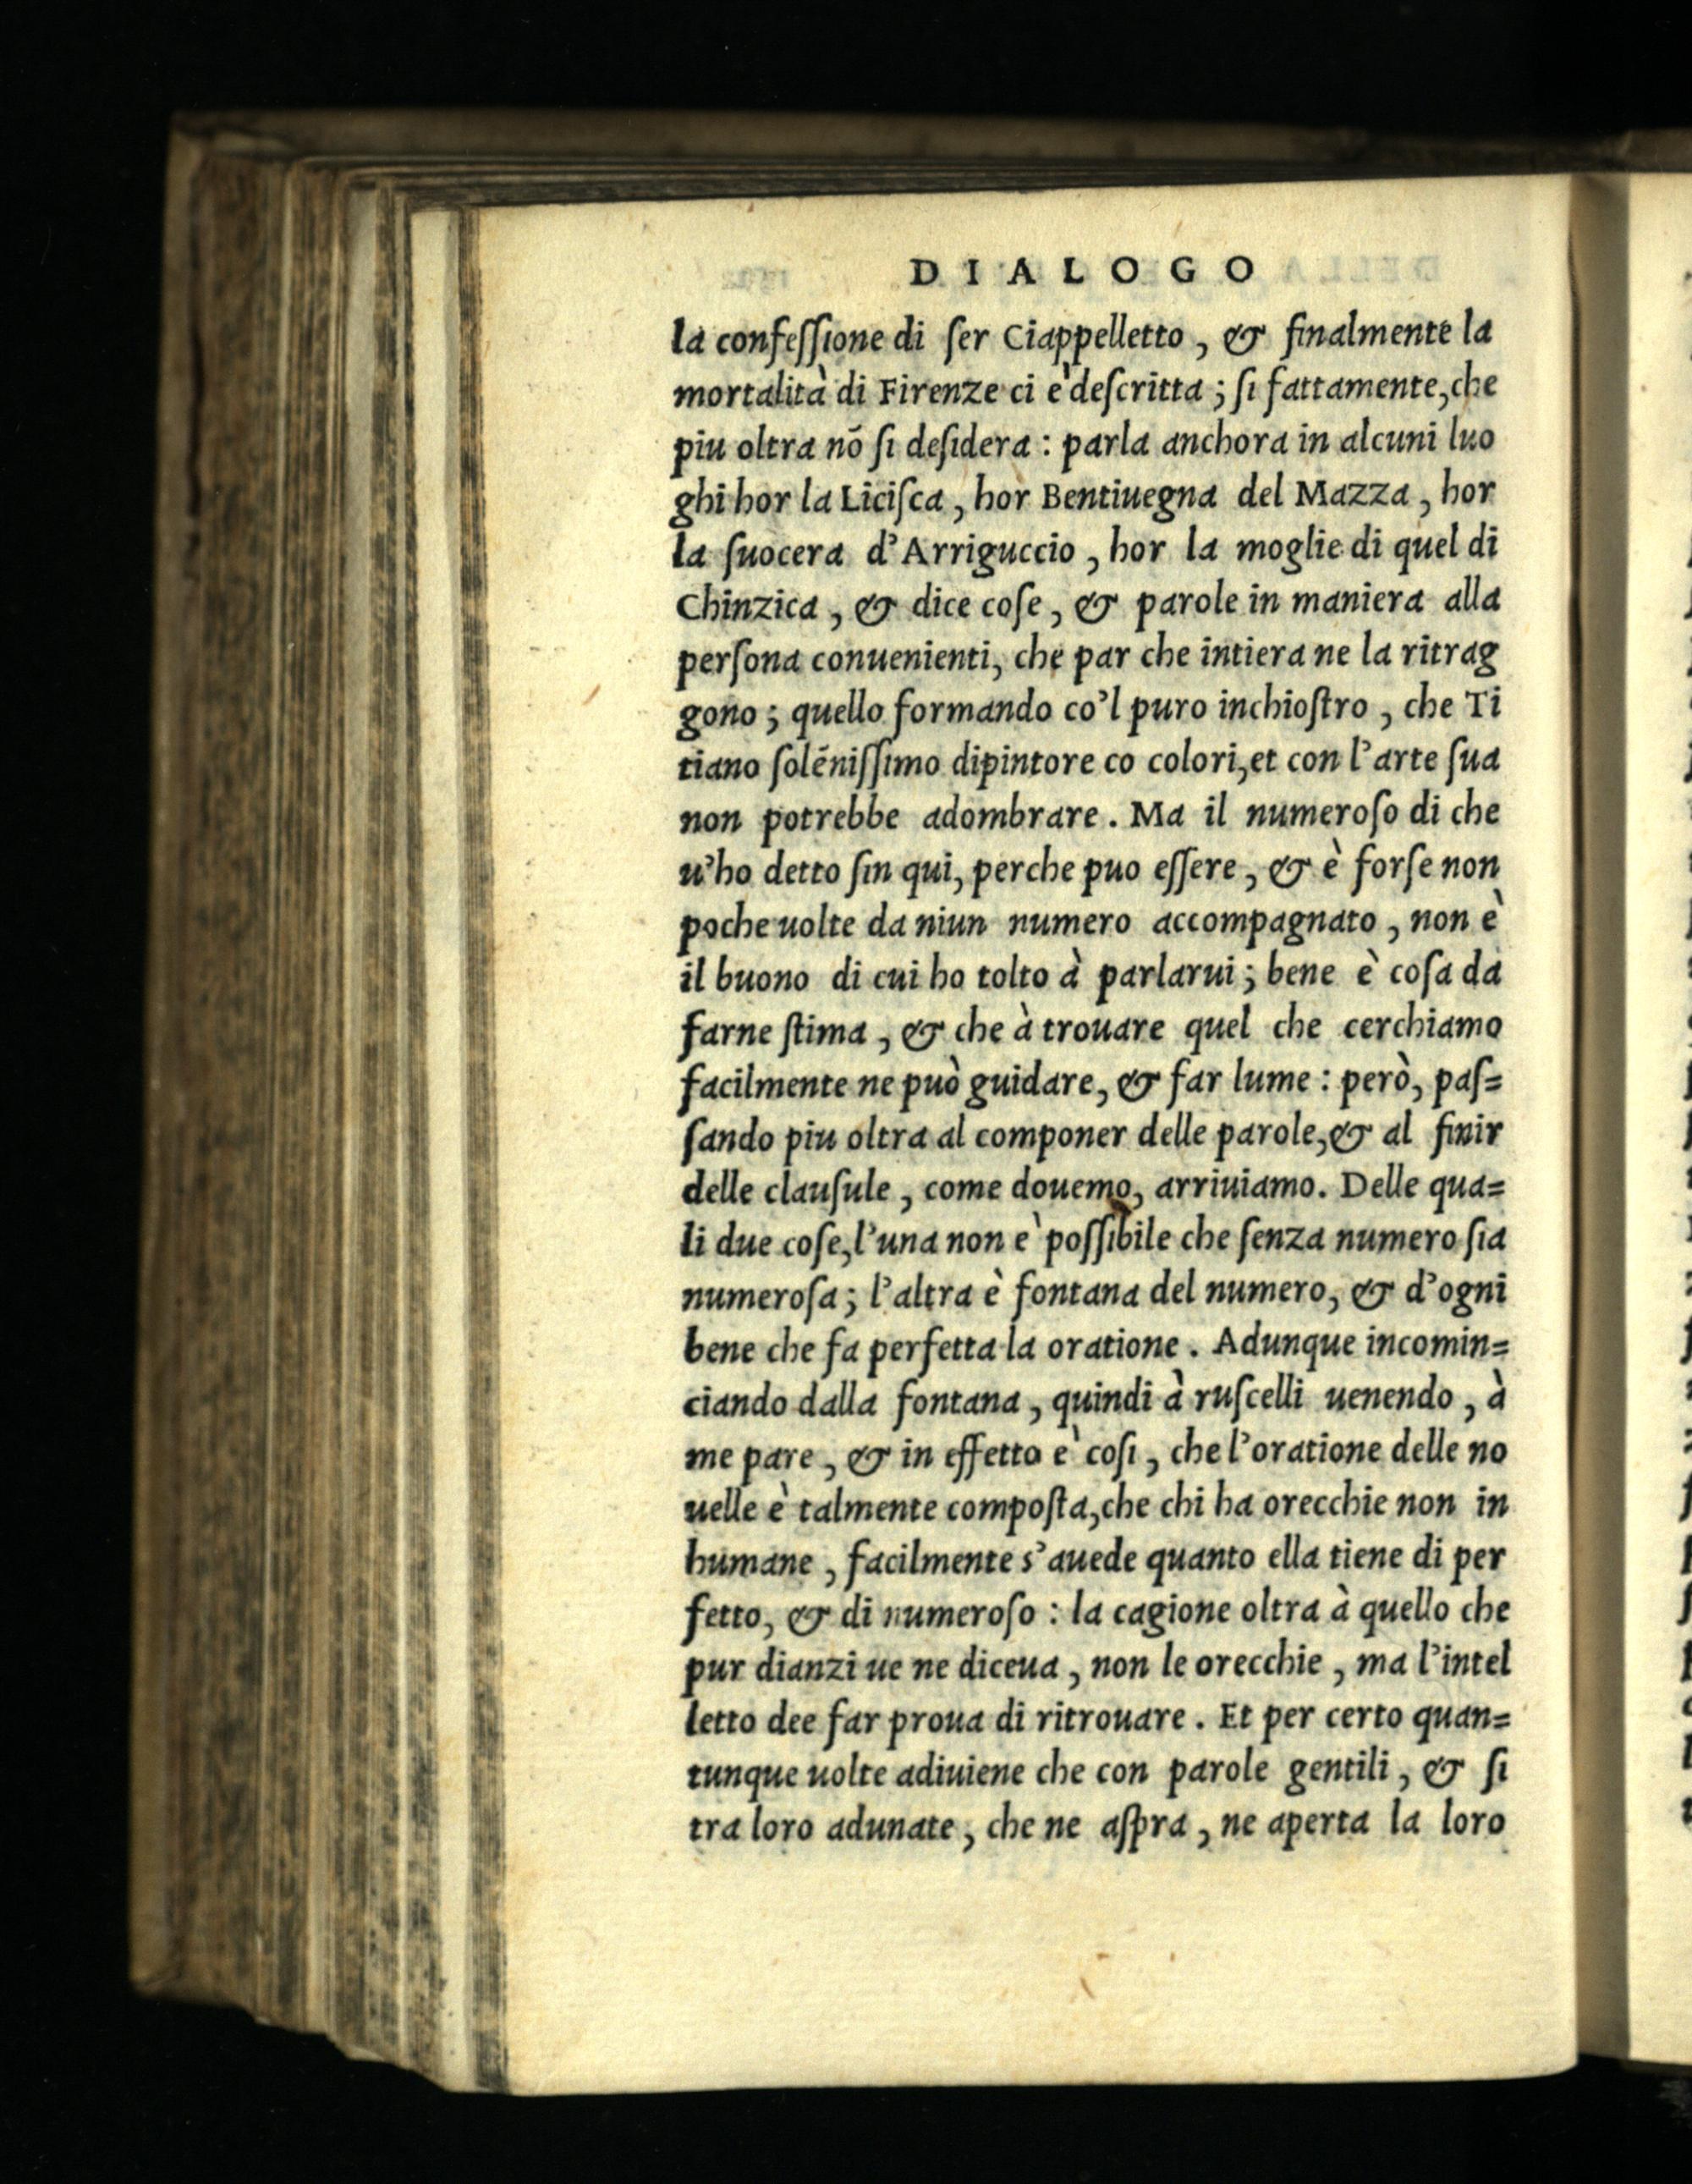 DIALOGO
la confeſſione di ſer Ciappelletto, & finalmente la
mortalità di Firenze ci è deſcritta; ſi fattamente, che
piu oltra nō ſi deſidera: parla anchora in alcuni luo
ghi hor la Liciſca, hor Bentiuegna del Mazza, hor
la ſuocera d'Arriguccio, hor la moglie di quel di
Chinzica, & dice coſe, & parole in maniera alla
perſona conuenienti, che par che intiera ne la ritrag
gono; quello formando co'l puro inchioſtro, che Ti
tiano ſolēniſſimo dipintore co colori, et con l'arte ſua
non potrebbe adombrare. Ma il numeroſo di che
u'ho detto ſin qui, perche puo eſſere, & è forſe non
poche uolte da niun numero accompagnato, non è
il buono di cui ho tolto à parlarui; bene è coſa da
farne ſtima, & che à trouare quel che cerchiamo
facilmente ne può guidare, & far lume: però, paſ=
ſando piu oltra al componer delle parole, & al finir
delle clauſule, come douemo, arriuiamo. Delle qua=
li due coſe, l'una non è poſſibile che ſenza numero ſia
numeroſa; l'altra è fontana del numero, & d'ogni
bene che fa perfetta la oratione. Adunque incomin=
ciando dalla fontana, quindi à ruſcelli uenendo, à
me pare, & in effetto è coſi, che l'oratione delle no
uelle è talmente compoſta, che chi ha orecchie non in
humane, facilmente s'auede quanto ella tiene di per
fetto, & di numeroſo: la cagione oltra à quello che
pur dianzi ue ne diceua, non le orecchie, ma l'intel
letto dee far proua di ritrouare. Et per certo quan=
tunque uolte adiuiene che con parole gentili, & ſi
tra loro adunate, che ne aſpra, ne aperta la loro